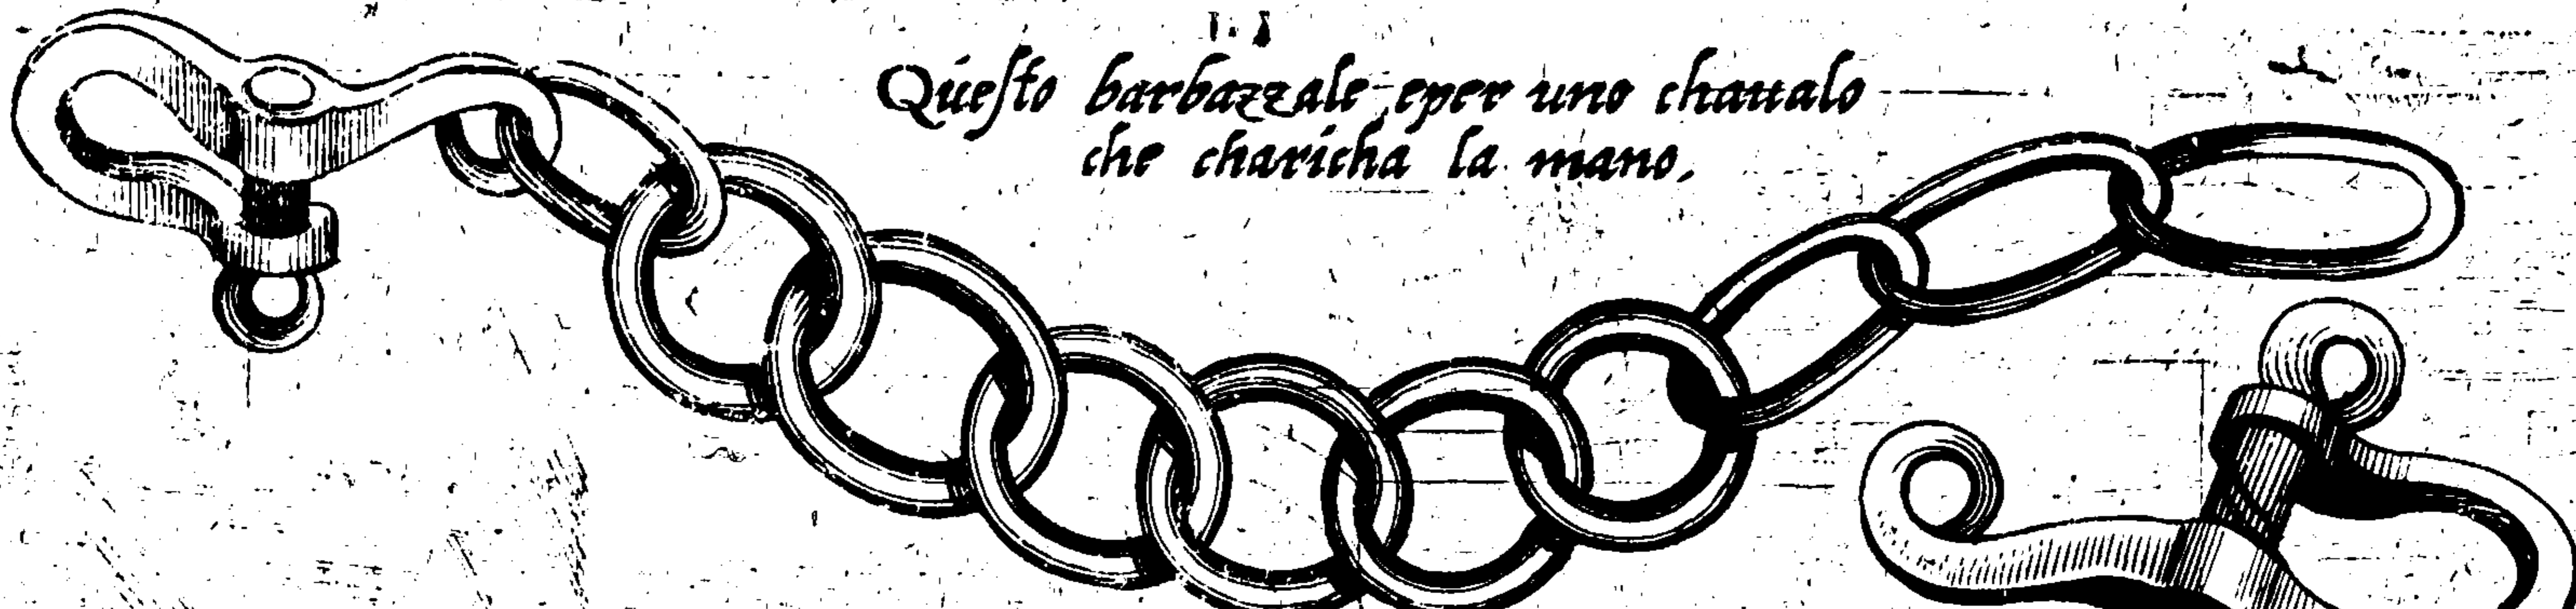 Queſto barbazzale eper uno chaualo
che charicha la mano.